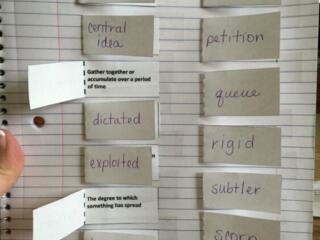 central
idea
Gather together or
accumulate over a period
of time
dictated
exploited
The degree to which
something has spread
petition
queue
rigid
subtler
scorn